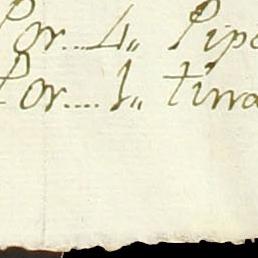 Por...4,, Pipa
Por....1,, tina